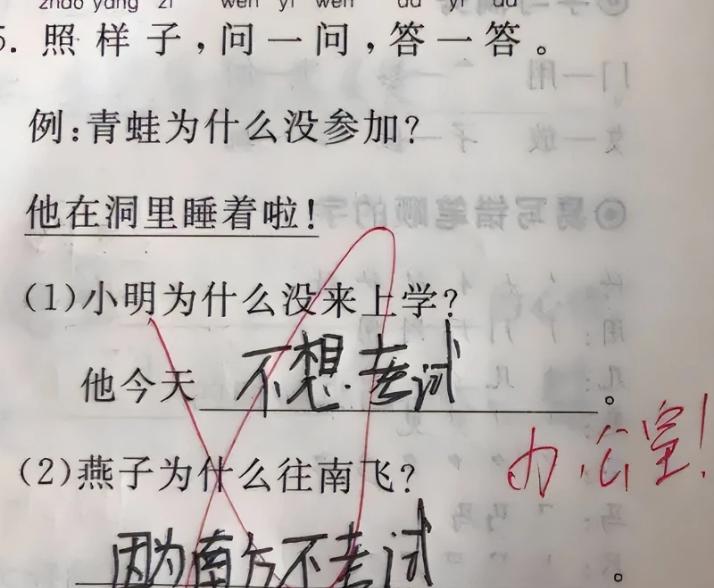 5. 照样子,问一问,答一答。
例:青蛙为什么没参加?
他在洞里睡着啦!
(1)小明为什么没来上学?
他今天不想考试。
办公室!
(2)燕子为什么往南飞?
因为南方不考试。